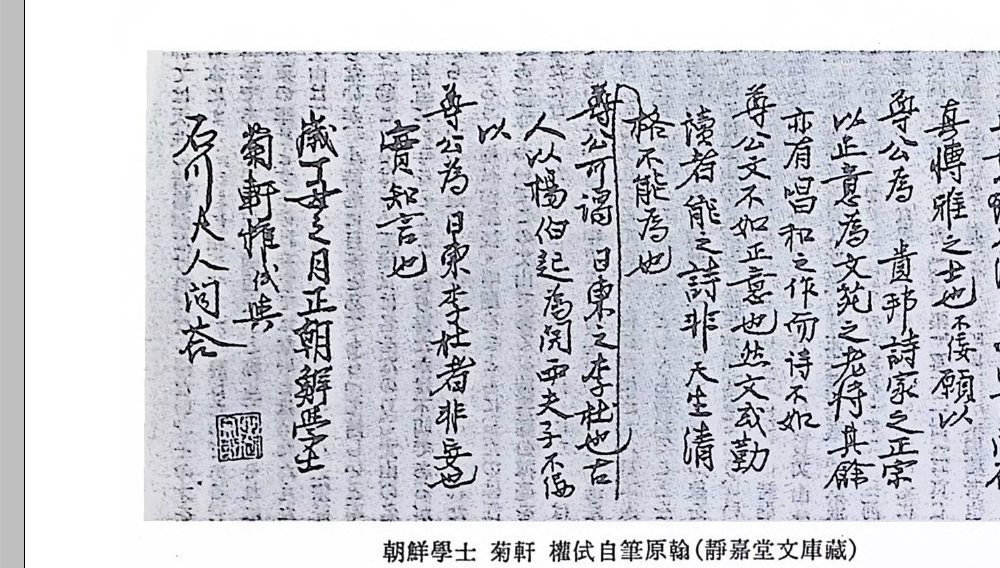 真博雅之士也不佞願以
尊公為 貴邦詩家之正宗
以正意為文苑之老將其餘
亦有唱和之作而詩不如
尊公文不如正意也然文或勤
讀者能之詩非天生清
格不能為也
尊公可謂 日東之李杜也古
人以楊伯起為関西夫子不佞
以
尊公為 日東李杜者非妄也
實知言也
歲丁丑之月正朝解學士
菊軒權侙與
石川大人問答
朝鮮學士 菊軒 權侙自筆原翰(靜嘉堂文庫藏)